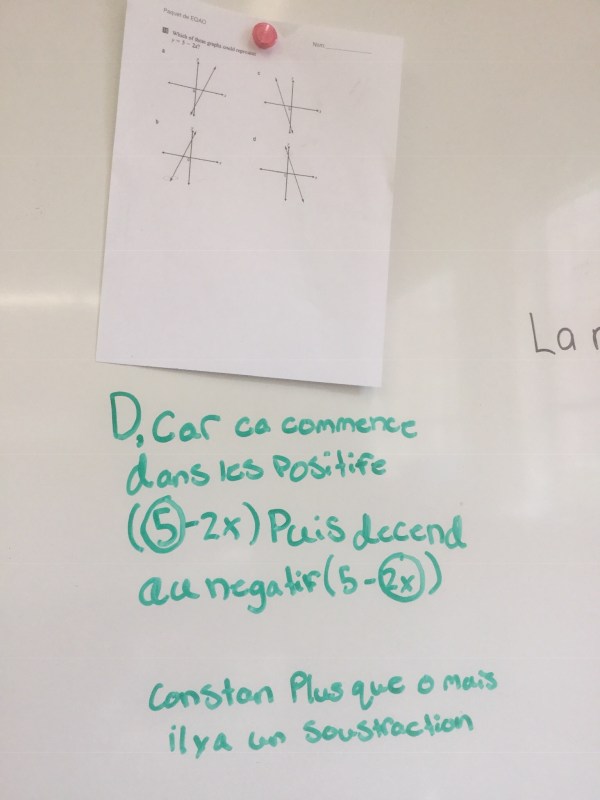 Paquet de EQAO
Which of these graphs could represent
y = 5 − 2x?
a
c
b
d
La
D, Car ca commence
dans les Positife
((5)-2x) Puis decend
au negatif (5-(2x))
Constan Plus que 0 mais
il y a un soustraction